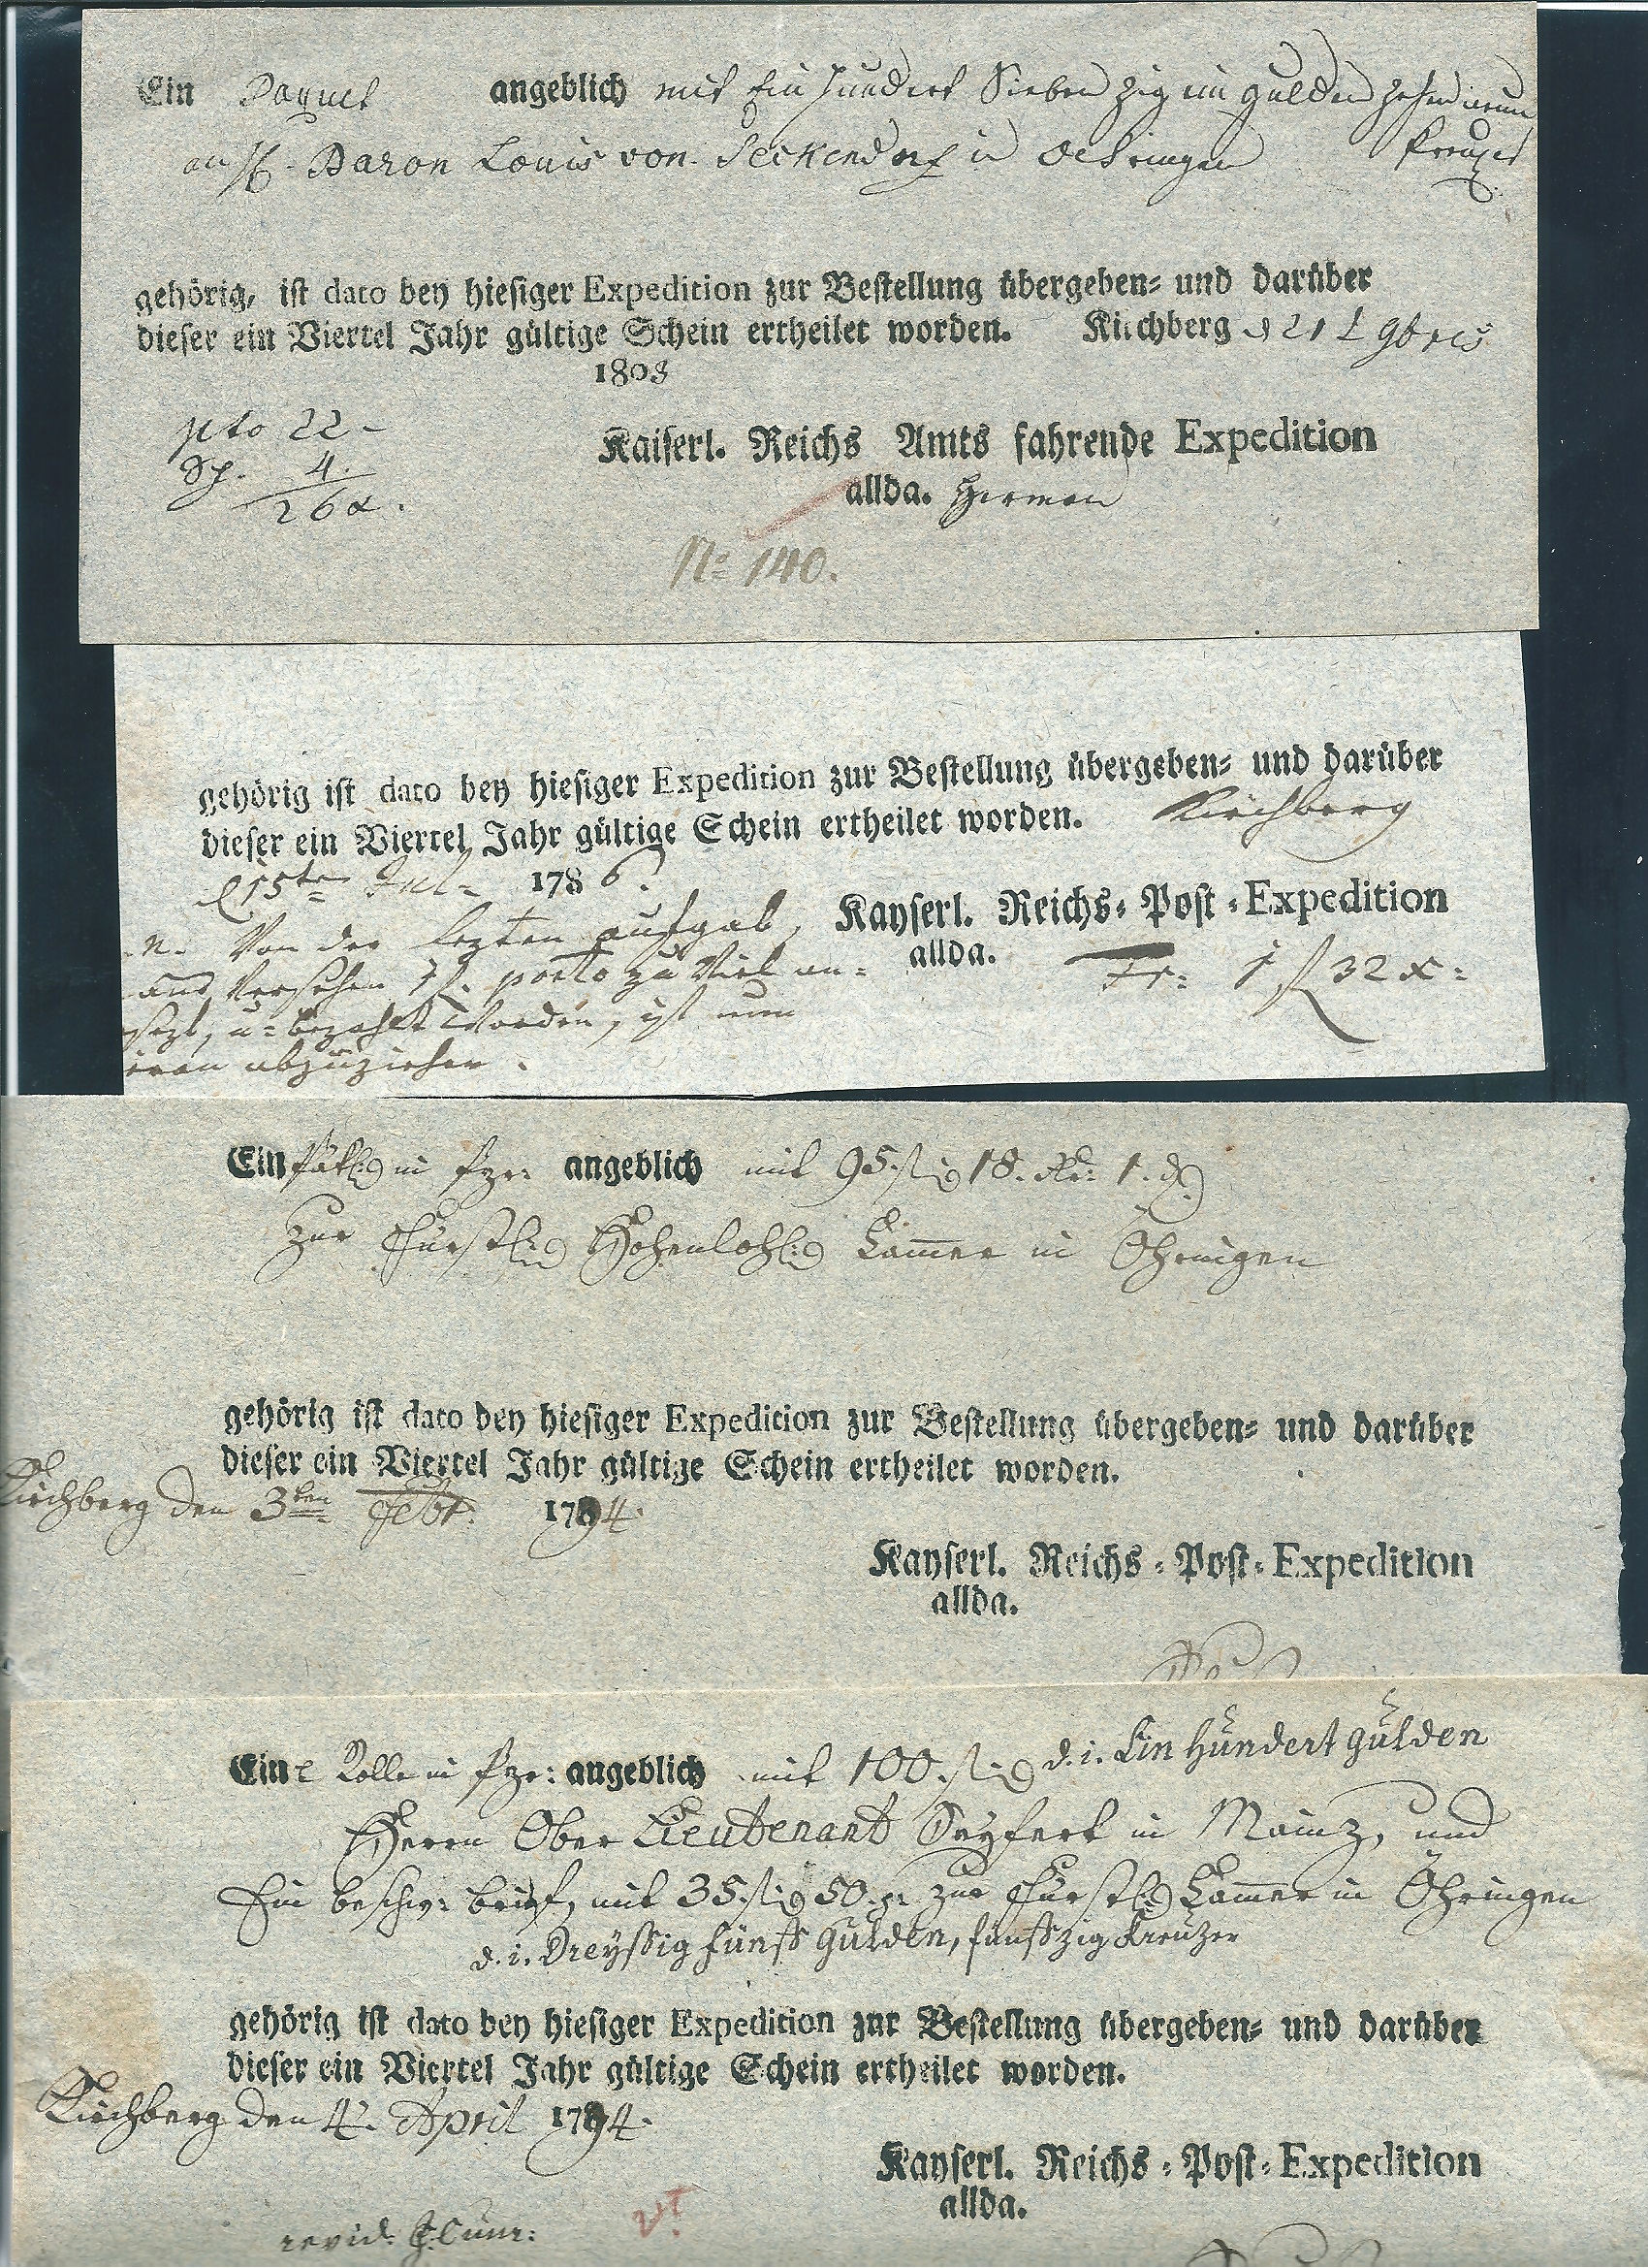 Ein Paquet angeblich mit Ein hundert Sieben zig ein gulden zehen neun
an H. Baron Louis von Seckendorf in Oehringen Kreuzer
gehörig, ist dato bey hiesiger Expedition zur Bestellung übergeben= und darüber
dieser ein Viertel Jahr gültige Schein ertheilet worden. Kirchberg d 21 t 9bris
1803
pto 22 -
4.
26 x.
Kaiserl. Reichs Amts fahrende Expedition
allda. Herman
No 140.
gehörig ist dato bey hiesiger Expedition zur Bestellung übergeben= und darüber
dieser ein Viertel Jahr gültige Schein ertheilet worden. Kirchberg
d 15ten Jul= 1786.
Kayserl. Reichs= Post=Expedition
allda.
Fr= 1 f 32 x:
.n. Von der lezten aufgab,
aus Versehen 1 f. porto zu Viel an=
sezt, u= bezahlt worden, ist nun
abzuziehen.
Ein Päkl. in angeblich mit 95. f. 18. Kr: 1. d.
Zur Fürstl. Hohenlohl. Cammer in Öhringen
gehörig ist dato bey hiesiger Expedition zur Bestellung übergeben= und darüber
dieser ein Viertel Jahr gültige Schein ertheilet worden.
Kirchberg den 3ten Febr. 1794.
Kayserl. Reichs=Post=Expedition
allda.
Eine Rolle in angeblich mit 100. f. d. i. Ein Hundert gulden
Herrn Ober Lieutenant Seyfert in Mainz, und
Ein beschw: brief, mit 35. f. 50. x. zur Fürstl. Cammer in Öhringen
d. i. Dreyssig fünff gulden, fünffzig Kreuzer
gehörig ist dato bey hiesiger Expedition zur Bestellung übergeben= und darüber
dieser ein Viertel Jahr gültige Schein ertheilet worden.
Kirchberg den 4. April 1794.
Kayserl. Reichs=Post=Expedition
allda.
revid.